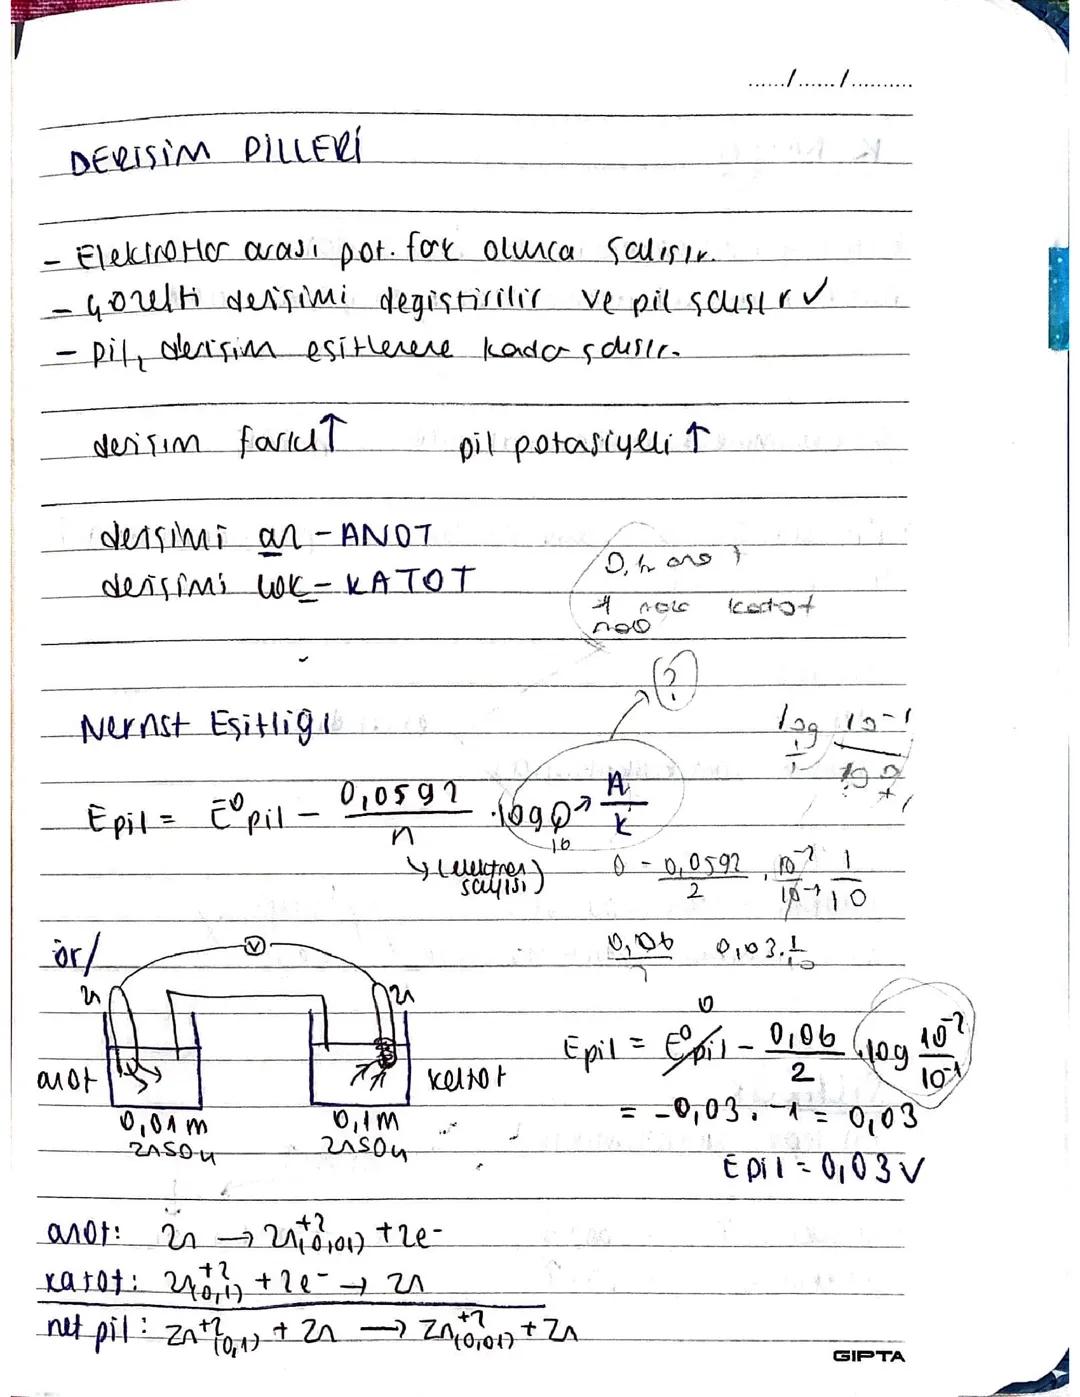 ....../....../..........
DERİŞİM PİLLERİ
- Elektrotlar arası pot. fark olunca çalışır.
- Çözelti derişimi değiştirilir ve pil çalışır ✓
- pil, derişim eşitlenene kadar çalışır.
derişim farkı↑ pil potasiyeli ↑
derişimi az - ANOT
derişimi çok - KATOT
katot
?
Nernst Eşitliği
log 10-1
Epil = E⁰pil - 0,0592/n · log Q → A/K
10
↳ (elektron sayısı)
0 - 0,0592/2 · 10⁻²/10⁻¹ 1/10
0,06 0,03.1/10
ör/
V
Zn Zn
anot katot
0,01 M 0,1M
ZnSO4 ZnSO4
0
Epil = E⁰pil - 0,06/2 · log 10⁻²/10⁻¹
= -0,03 . -1 = 0,03
Epil = 0,03 V
anot: Zn → Zn+2(0,01) + 2e-
katot: Zn+2(0,1) + 2e- → Zn
net pil: Zn+2(0,1) + Zn → Zn+2(0,01) + Zn
GIPTA